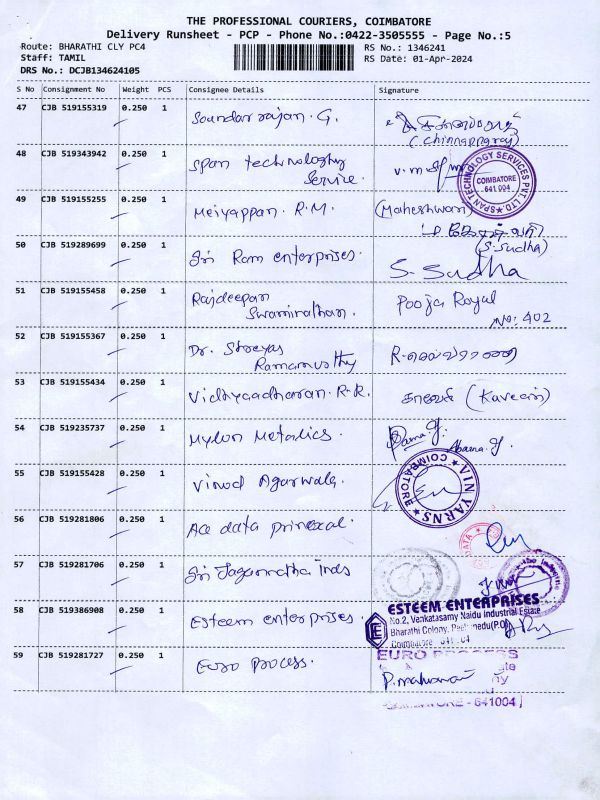 THE PROFESSIONAL COURIERS, COIMBATORE
Delivery Runsheet - PCP - Phone No.:0422-3505555 - Page No.:5
Route: BHARATHI CLY PC4
RS No.: 1346241
Staff: TAMIL
RS Date: 01-Apr-2024
DRS No.: DCJB134624105
S No Consignment No Weight PCS Consignee Details Signature
47 CJB 519155319 0.250 1 Soundar rajan. G.
(Chinnapparaj)
48 CJB 519343942 0.250 1 Span technology
Service.
SPAN TECHNOLOGY SERVICES PVT. LTD
COIMBATORE
641 004
49 CJB 519155255 0.250 1 Meiyappan. R.M. (Maheshwari)
50 CJB 519289699 0.250 1 Sri Ram enterprises.
(S. Sudha)
S. Sudha
51 CJB 519155458 0.250 1 Rajdeepan
Swaminathan. Pooja Royal
No: 402
52 CJB 519155367 0.250 1 Dr. Shreyas
Ramamurthy
53 CJB 519155434 0.250 1 Vidhyaadharan. R.R. காவேரி (Kaveeri)
54 CJB 519235737 0.250 1 Mylon Metalics.
55 CJB 519155428 0.250 1 Vinod Agarwala.
VIN YARNS
COIMBATORE
56 CJB 519281806 0.250 1 Ace data
57 CJB 519281706 0.250 1 Sri Jagannatha Inds
58 CJB 519386908 0.250 1 Esteem enterprises.
ESTEEM ENTERPRISES
No.2, Venkatasamy Naidu Industrial Estate
Bharathi Colony, Peelamedu(P.O)
Coimbatore - 641 004
59 CJB 519281727 0.250 1 Euro Process.
EURO PROCESS
COIMBATORE - 641004